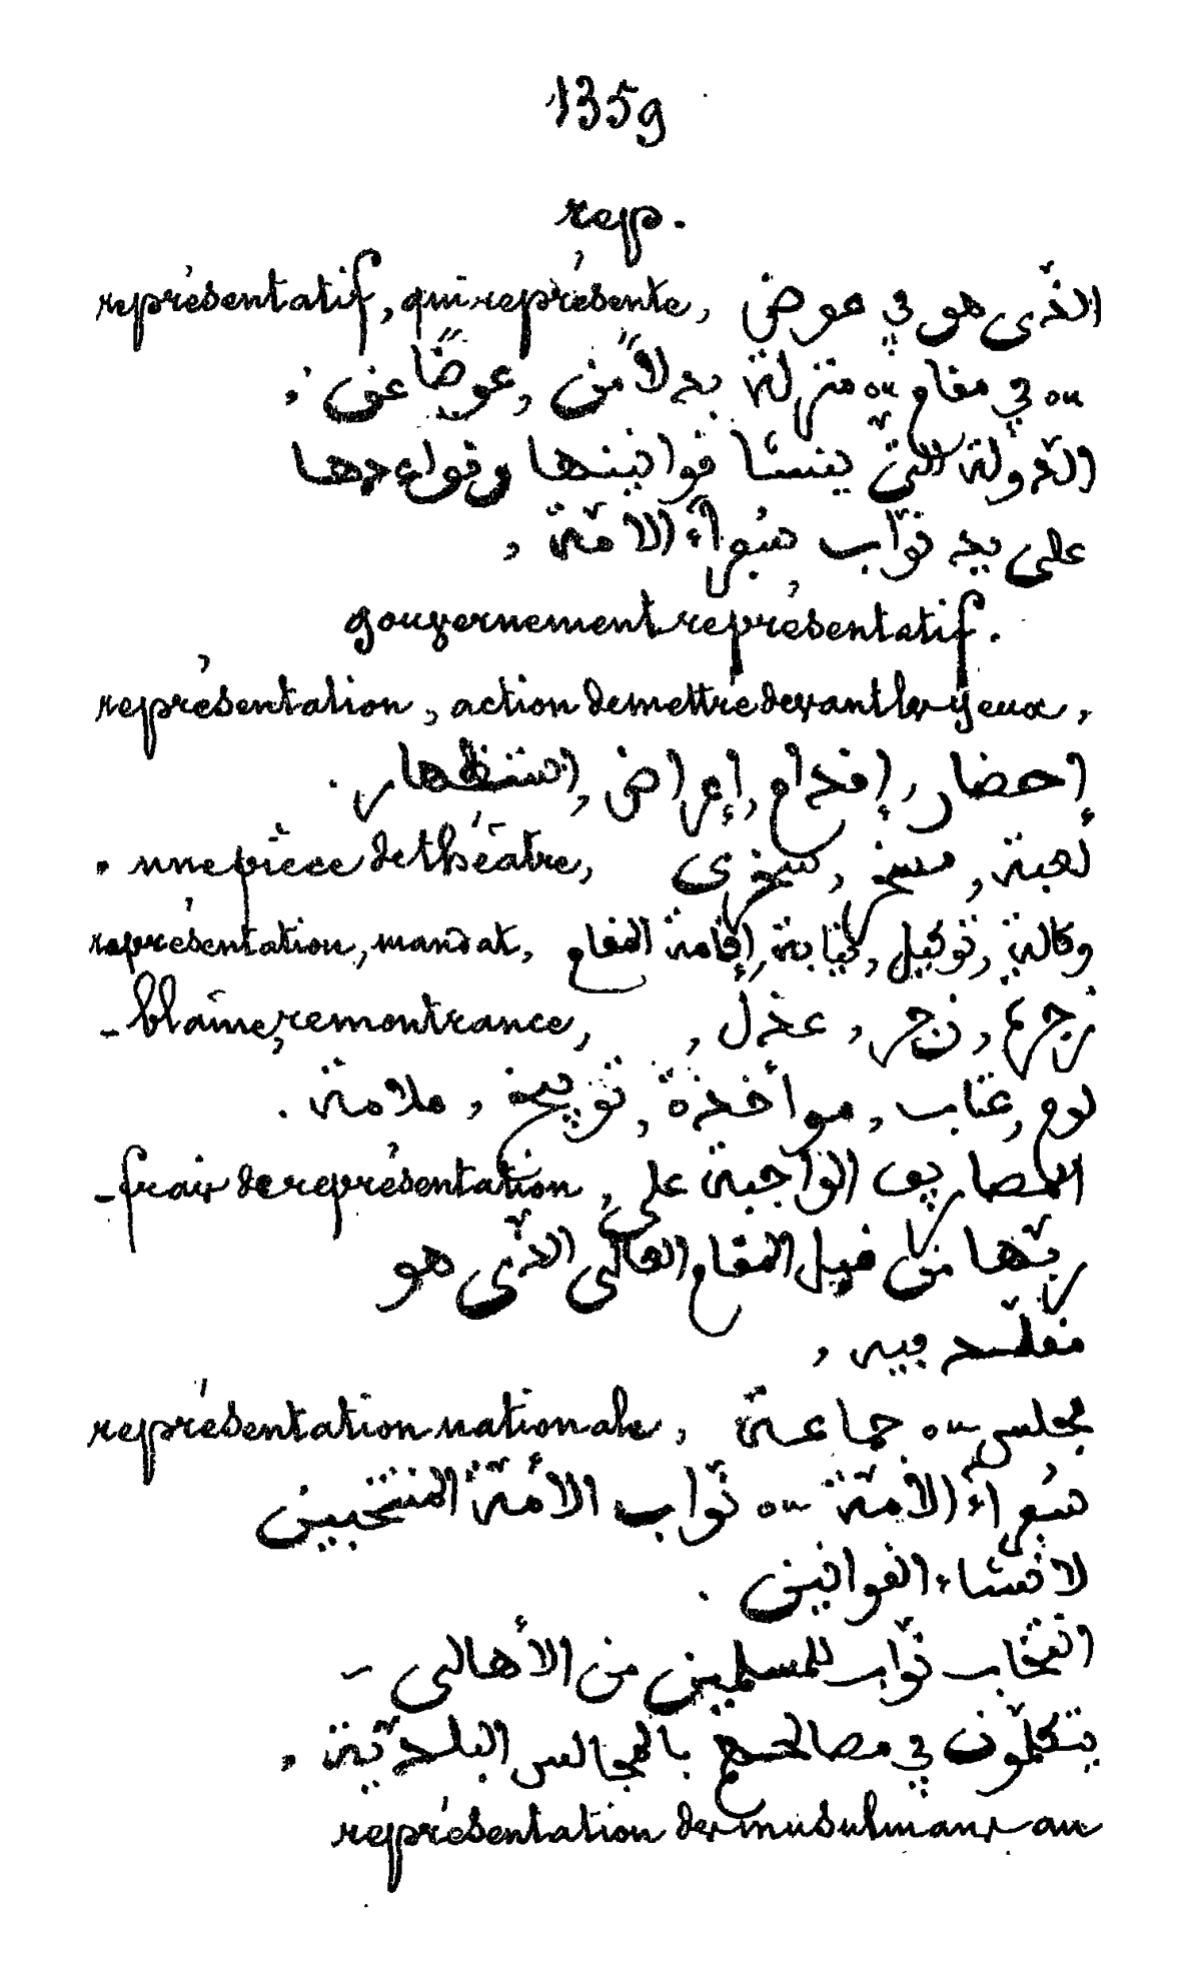 1359
rep.
représentatif, qui représente, الذّى هو في عوض
ou في مقام ou منزلة بدلاً من , عوضًا عن .,
الدّولة التّي ينشأ قوانينها وقواعدها
على يد نوّاب سُفرآء الامّة ,
gouvernement représentatif.
représentation, action de mettre devant les yeux,
إحضار, إقدام, إعراض, استظهار.
. une pièce de théâtre, لعبة, مسخر, سخرى
représentation, mandat, وكالة, توكيل, نيابة, إقامة المقام
- blâme, remontrance, زجرة, زجر, عذل,
لوم, عتاب, موأخذة, توبيخ, ملامة.
- frais de représentation, المصاريف الواجبة على
ربّها من قبل المقام العالى الذّى هو
مقلّد فيه,
représentation nationale, مجلس ou جماعة
سُفرآء الأمّة ou نوّاب الأمّة المنتخبين
لانشاء القوانين.
انتخاب نوّاب للمسلمين من الأهالى -
يتكلّمون في مصالحهم بالمجالس البلديّة,
représentation des musulmans au